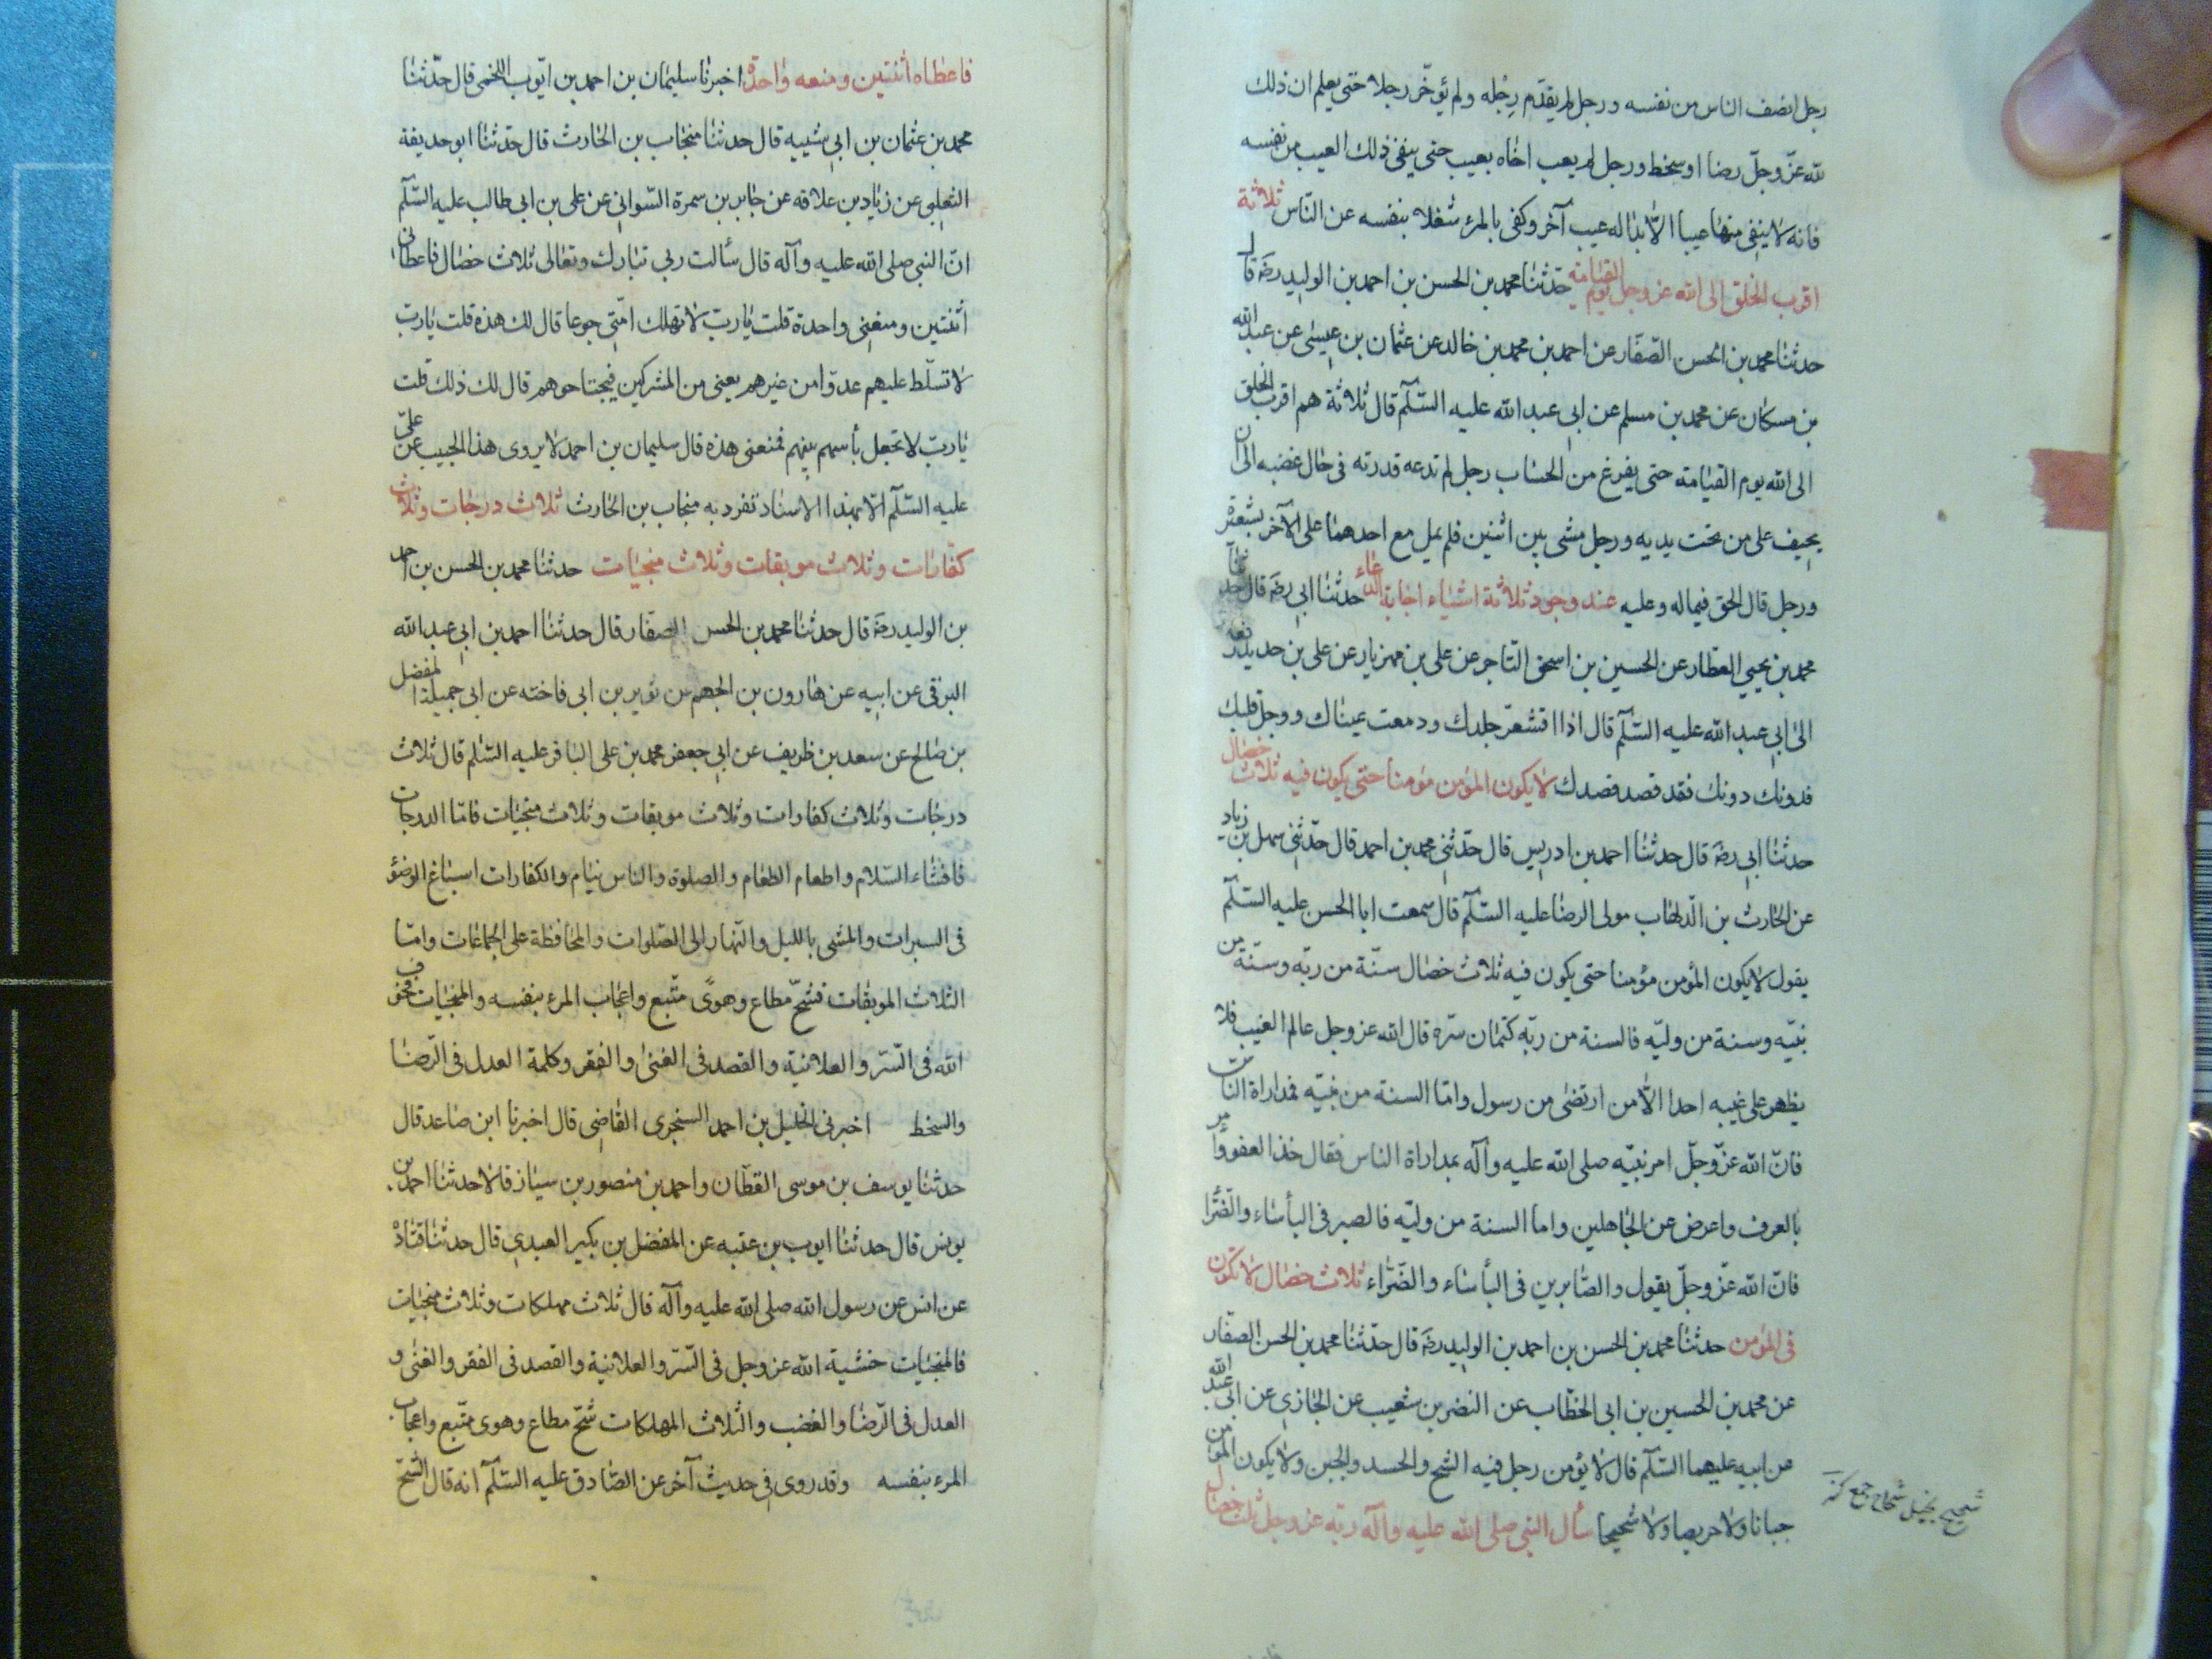 رجل انصف الناس من نفسه ورجل لم يقدّم رِجله ولم يؤخّر رجلا حتى يعلم ان ذلك
لله عزّ وجلّ رضا او سخط ورجل لم يعب اخاه بعيب حتى ينفى ذلك العيب من نفسه
فانه لا ينفى منها عيبا الّا بدا له عيب آخر وكفى بالمرء شغلا بنفسه عن النّاس ثلاثة
اقرب الخلق الى الله عز وجل يوم القيامة حدّثنا محمد بن الحسن بن احمد بن الوليد رضه قال
حدثنا محمد بن الحسن الصّفار عن احمد بن محمد بن خالد عن عثمان بن عيسى عن عبد الله
بن مسكان عن محمد بن مسلم عن ابى عبد الله عليه السّلم قال ثلاثة هم اقرب الخلق
الى الله يوم القيامة حتى يفرغ من الحساب رجل لم تدعه قدرته فى حال غضبه الى ان
يحيف على من تحت يديه ورجل مشى بين اثنين فلم يمل مع احدهما على الآخر بشعيرة
ورجل قال الحق فيما له وعليه عند وجود ثلاثة اشياء اجابة الدعاء حدثنا ابى رضه قال حدثنا
محمد بن يحيى العطار عن الحسين بن اسحق التاجر عن على بن مهزيار عن على بن حديد رفعه
الى ابى عبد الله عليه السّلم قال اذا اقشعرّ جلدك ودمعت عيناك ووجل قلبك
فدونك دونك فقد قصد قصدك لا يكون المؤمن مؤمنا حتى يكون فيه ثلاث خصال
حدثنا ابى رضه قال حدثنا احمد بن ادريس قال حدّثنى محمد بن احمد قال حدّثنى سهل بن زياد
عن الحارث بن الدلهاب مولى الرضا عليه السّلم قال سمعت ابا الحسن عليه السّلم
يقول لا يكون المؤمن مؤمنا حتى يكون فيه ثلاث خصال سنّة من ربّه وسنّة من
نبيّه وسنة من وليّه فالسنة من ربّه كتمان سرّه قال الله عز وجل عالم الغيب فلا
يظهر على غيبه احدا الّا من ارتضى من رسول وامّا السنة من نبيّه فمداراة الناس
فانّ الله عزّ وجلّ امر نبيّه صلى الله عليه وآله بمداراة الناس فقال خذ العفو وأمر
بالعرف واعرض عن الجاهلين واما السنة من وليّه فالصبر فى البأساء والضّرّا
فانّ الله عزّ وجلّ يقول والصّابرين فى البأساء والضّرّاء ثلاث خصال لا تكون
فى المؤمن حدثنا محمد بن الحسن بن احمد بن الوليد رضه قال حدّثنا محمد بن الحسن الصفار
عن محمد بن الحسين بن ابى الخطّاب عن النضر بن شعيب عن الجازى عن ابى عبد الله
عن ابيه عليهما السّلم قال لا يؤمن رجل فيه الشح والحسد والجبن ولا يكون المؤمن
جبانا ولا حريصا ولا شحيحا سأل النبى صلى الله عليه وآله ربّه عز وجل ثلث خصال
شحيح بخيل شحاح جمع
فاعطاه اثنتين ومنعه واحدة اخبرنا سليمان بن احمد بن ايّوب اللخمى قال حدّثنا
محمد بن عثمان بن ابى شيبه قال حدثنا منجاب بن الحارث قال حدّثنا ابو حديفة
الثعلبى عن زياد بن علاقه عن جابر بن سمرة السّوانى عن على بن ابى طالب عليه السّلم
انّ النبى صلى الله عليه وآله قال سألت ربى تبارك وتعالى ثلاث خصال فاعطانى
اثنتين ومنعنى واحدة قلت يا ربّ لا تهلك امّتى جوعا قال لك هذه قلت يا ربّ
لا تسلّط عليهم عدوّا من غيرهم يعنى من المشركين فيجتاحوهم قال لك ذلك قلت
يا ربّ لا تجعل بأسهم بينهم فمنعنى هذه قال سليمان بن احمد لا يروى هذا الحديث عن على
عليه السّلم الّا بهذا الاسناد تفرد به منجاب بن الحارث ثلاث درجات وثلاث
كفّارات وثلاث موبقات وثلاث منجيات حدثنا محمد بن الحسن بن احمد
بن الوليد رضه قال حدثنا محمد بن الحسن الصفار قال حدثنا احمد بن ابى عبد الله
البرقى عن ابيه عن هارون بن الجهم عن ثوير بن ابى فاخته عن ابى جميلة المفضل
بن صالح عن سعد بن ظريف عن ابى جعفر محمد بن على الباقر عليه السّلم قال ثلاث
درجات وثلاث كفارات وثلاث موبقات وثلاث منجيات فامّا الدرجات
فافشاء السّلام واطعام الطعام والصلوة والناس نيام والكفارات اسباغ الوضؤ
فى السبرات والمشى بالليل والنّهار الى الصّلوات والمحافظة على الجماعات وامّا
الثلاث الموبقات فشحّ مطاع وهوىً متّبع واعجاب المرء بنفسه والمنجيات فخوف
الله فى السّرّ والعلانية والقصد فى الغنى والفقر وكلمة العدل فى الرّضا
والسخط اخبرنى الخليل بن احمد السنجرى القاضى قال اخبرنا ابن صاعد قال
حدثنا يوسف بن موسى القطّان واحمد بن منصور بن سياز قالا حدثنا احمد بن
يونس قال حدثنا ايوب بن عتبه عن المفضل بن بكير العبدى قال حدثنا قتادة
عن انس عن رسول الله صلى الله عليه وآله قال ثلاث مهلكات وثلاث منجيات
فالمنجيات خشية الله عز وجل فى السّرّ والعلانية والقصد فى الفقر والغنى و
العدل فى الرّضا والغضب والثلاث المهلكات شحّ مطاع وهوى متّبع واعجاب
المرء بنفسه وقد روى فى حديث آخر عن الصّادق عليه السّلم انه قال الشحّ